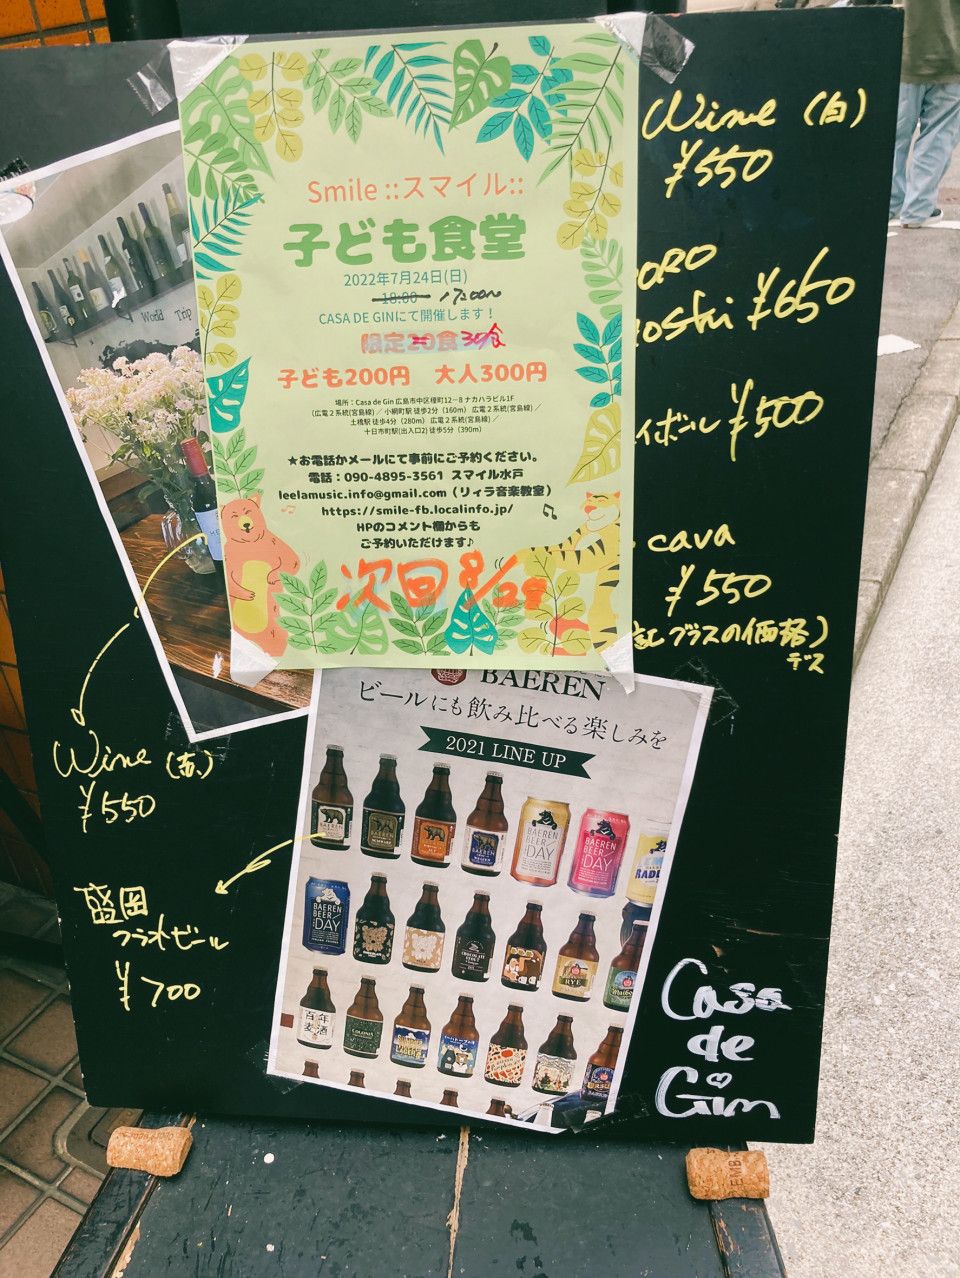 Smile ::スマイル::
子ども食堂
2022年7月24日(日)
18:00 17:00～
CASA DE GINにて開催します！
限定20食 30食
子ども200円 大人300円
場所：Casa de Gin 広島市中区榎町12－8 ナカハラビル1F
（広電２系統(宮島線) ／ 小網町駅 徒歩2分（160m） 広電２系統(宮島線) ／
土橋駅 徒歩4分（280m） 広電２系統(宮島線) ／
十日市町駅(出入口2) 徒歩5分（390m）
★お電話かメールにて事前にご予約ください。
電話：090-4895-3561 スマイル水戸
leelamusic.info@gmail.com（リィラ音楽教室）
https://smile-fb.localinfo.jp/
HPのコメント欄からも
ご予約いただけます♪
次回 8/28
Wine (白)
¥550
ORO
oshi ¥650
イボール ¥500
cava
¥550
グラスの価格)
デス
World Trip
Wine (赤)
¥550
盛岡
クラフトビール
¥700
BAEREN
ビールにも飲み比べる楽しみを
2021 LINE UP
BAEREN
BEER
DAY
BAEREN
BEER
DAY
RADL
BAEREN
BEER
DAY
CHOCOLATE
STOUT
RYE
百年
麦酒
COLONIA
SUMMER
LAGER
Casa
de
Gin